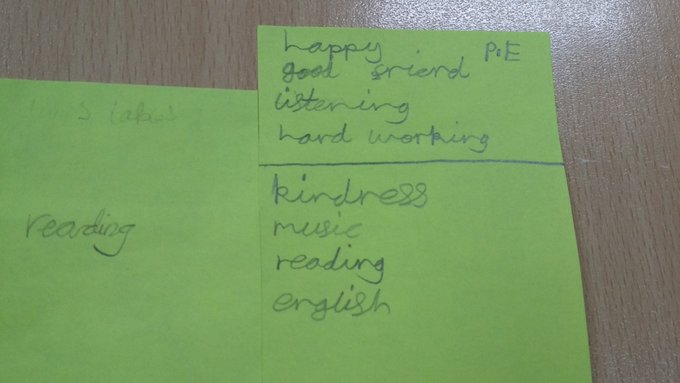 reading
happy P.E
good sriend
listening
hard working
kindness
music
reading
english